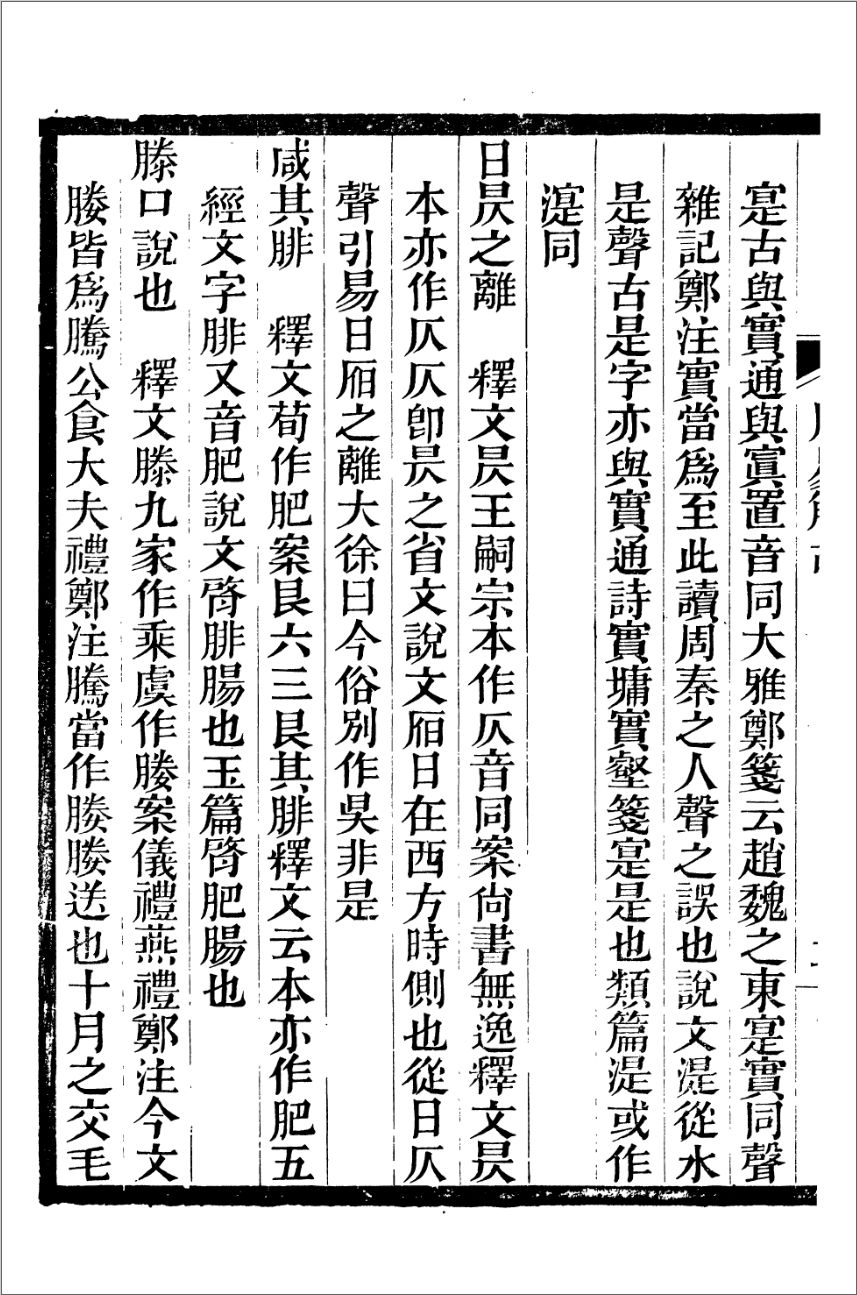 寔古與實通與寘置音同大雅鄭箋云趙魏之東寔實同聲
雜記鄭注實當爲至此讀周秦之人聲之誤也說文湜從水
是聲古是字亦與實通詩實墉實壑箋寔是也類篇湜或作
同
日昃之離　釋文昃王嗣宗本作仄音同案尚書無逸釋文昃
本亦作仄仄卽昃之省文說文日在西方時側也從日仄
聲引易日之離大徐曰今俗別作吳非是
咸其腓　釋文荀作肥案艮六三艮其腓釋文云本亦作肥五
經文字腓又音肥說文䏿腓腸也玉篇䏿肥腸也
滕口說也　釋文滕九家作乘虞作媵案儀禮燕禮鄭注今文
媵皆爲騰公食大夫禮鄭注騰當作媵媵送也十月之交毛